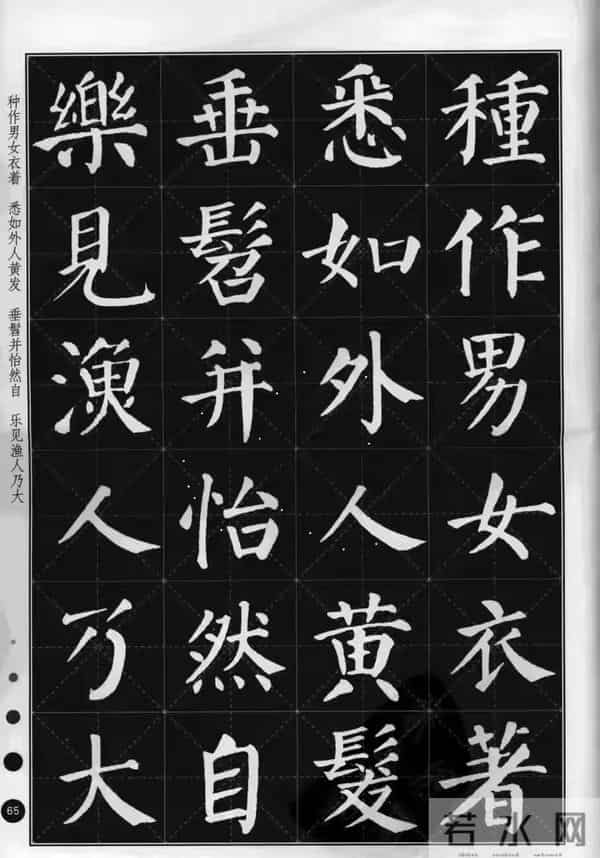 種作男女衣著
悉如外人黄髮
垂髫并怡然自
樂見漁人乃大
种作男女衣着 悉如外人黄发 垂髫并怡然自 乐见渔人乃大
65
若水网